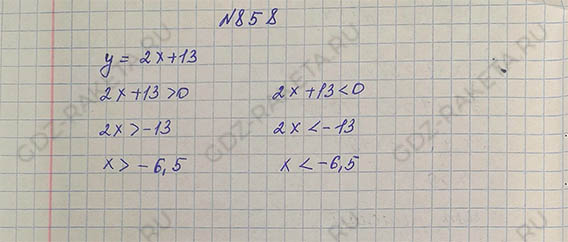 №858
y = 2x+13
2x+13>0 2x+13<0
2x>-13 2x<-13
x>-6,5 x<-6,5
GDZ-RAKETA.RU
GDZ-RAKETA.RU